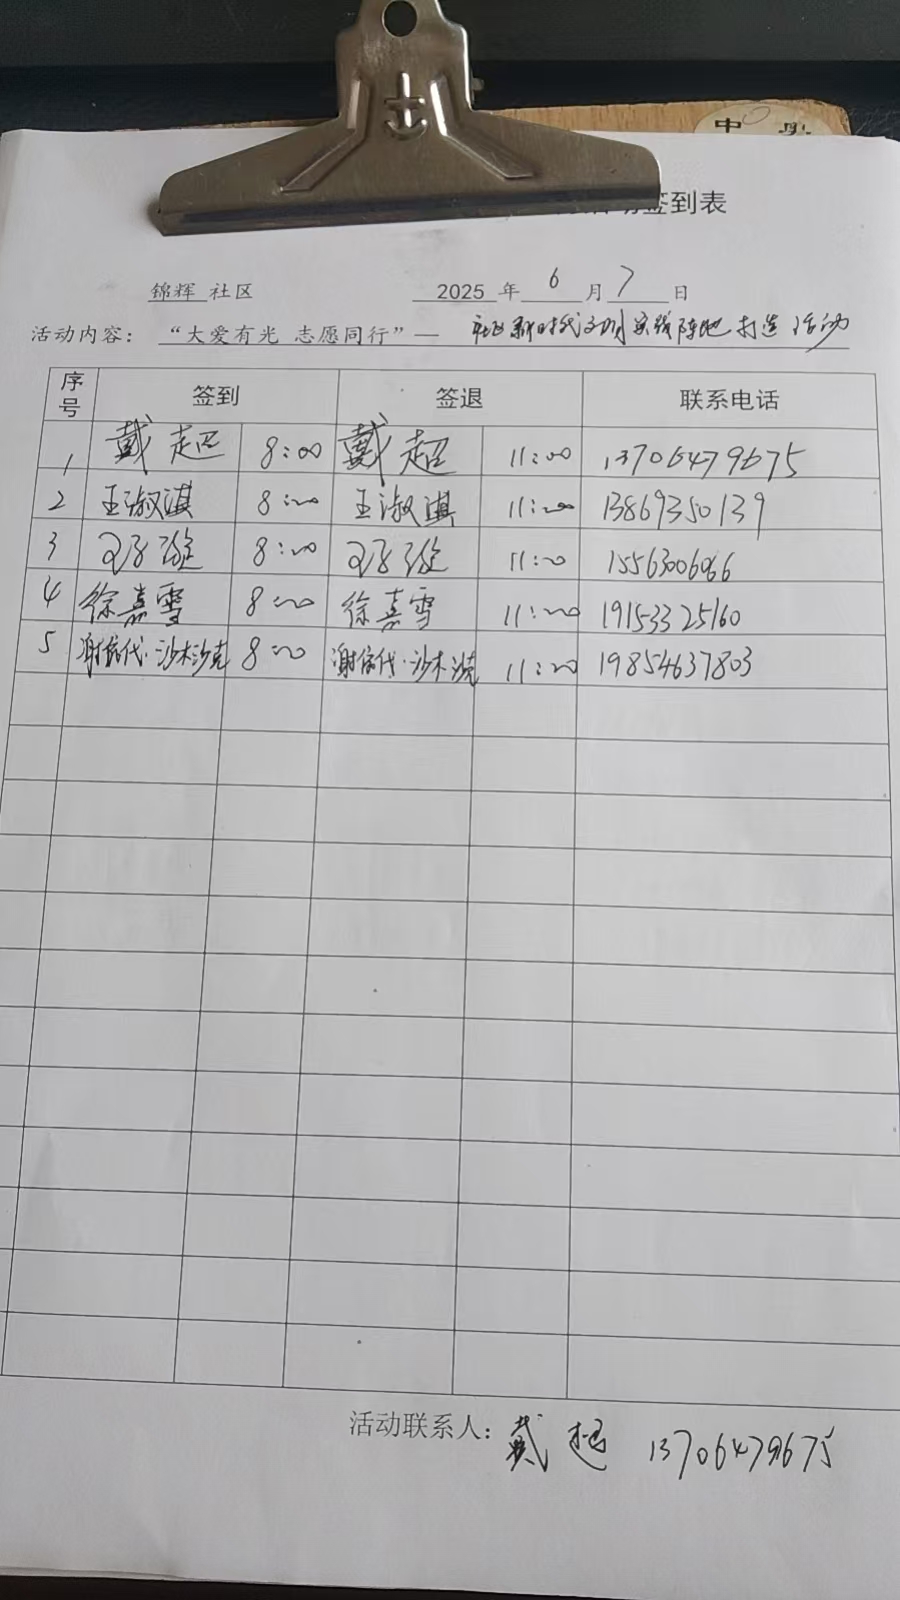 中
签到表
锦辉 社区 2025 年 6 月 7 日
活动内容： “大爱有光 志愿同行”— 社区新时代文明实践阵地打造活动
序号 签到 签退 联系电话
1 戴超 8:00 戴超 11:00 13706479675
2 王淑淇 8:00 王淑淇 11:00 13869350139
3 8:00 11:00 15563006066
4 徐嘉雪 8:00 徐嘉雪 11:00 19153325160
5 谢依代·沙木沙克 8:00 谢依代·沙木沙克 11:00 19854637803
活动联系人： 戴超 13706479675